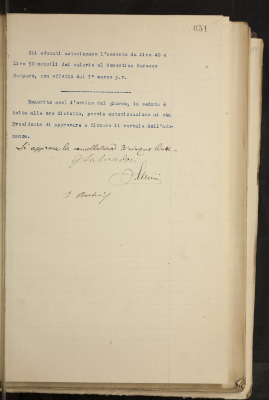 651
Gli adunati autorizzano l'aumento da lire 40 a
lire 50 mensili del salario al domestico
Gaspare, con effetto dal 1° marzo p.v.
Esaurito così l'ordine del giorno, la seduta è
tolta alle ore diciotto, previa autorizzazione al sig.
Presidente di approvare e firmare il verbale dell'adu-
nanza.
Si approva la cancellatura di cinque linee.
G Salvadori